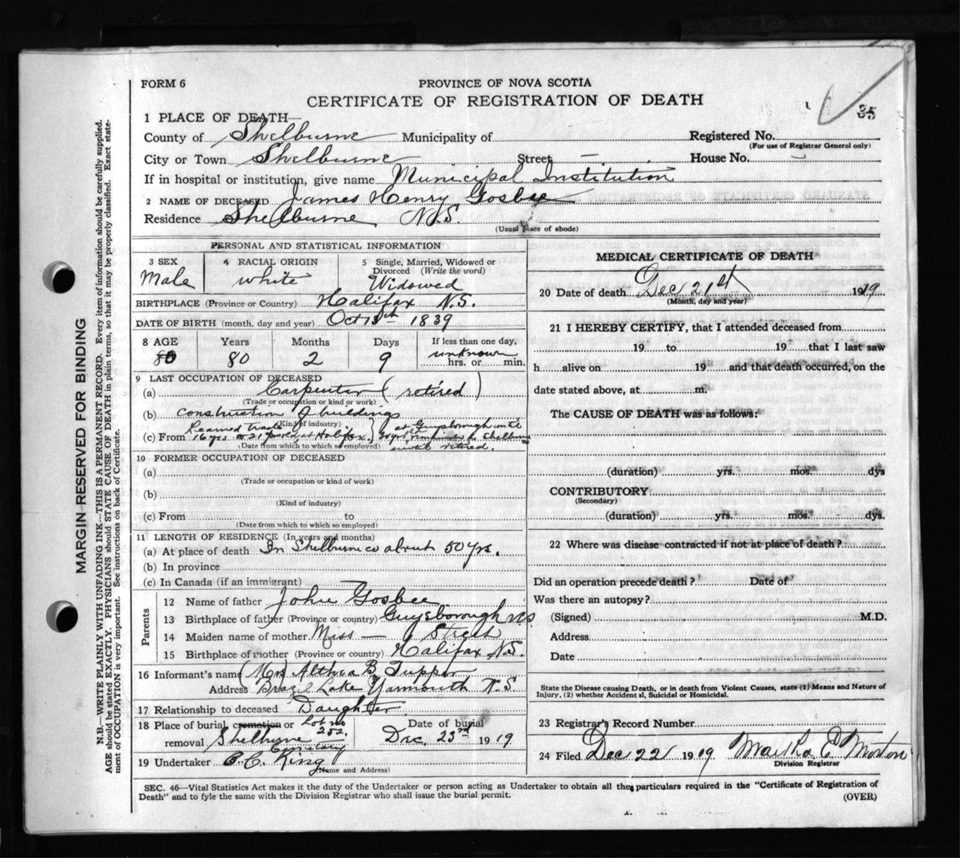 FORM 6
PROVINCE OF NOVA SCOTIA
CERTIFICATE OF REGISTRATION OF DEATH
35
1 PLACE OF DEATH—
County of Shelburne Municipality of Registered No.
(For use of Registrar General only)
City or Town Shelburne Street — House No.
If in hospital or institution, give name Municipal Institution
2 NAME OF DECEASED James Henry Gosbee
Residence Shelburne N.S.
(Usual place of abode)
PERSONAL AND STATISTICAL INFORMATION
3 SEX 4 RACIAL ORIGIN 5 Single, Married, Widowed or Divorced (Write the word)
Male white Widowed
BIRTHPLACE (Province or Country) Halifax N.S.
DATE OF BIRTH (month, day and year) Oct 1839
8 AGE Years Months Days If less than one day,
80 80 2 9 unknown hrs. or min.
9 LAST OCCUPATION OF DECEASED
(a) Carpenter (retired)
(Trade or occupation or kind or work)
(b) Construction of buildings
(Kind of industry)
Learned trade
(c) From 16 yrs to 21 at Halifax. at Guysborough until
(Date from which to which so employed) until retired.
10 FORMER OCCUPATION OF DECEASED
(a)
(Trade or occupation or kind of work)
(b)
(Kind of industry)
(c) From to
(Date from which to which so employed)
11 LENGTH OF RESIDENCE (In years and months)
(a) At place of death In Shelburne co about 50 yrs.
(b) In province
(c) In Canada (if an immigrant)
Parents
12 Name of father John Gosbee
13 Birthplace of father (Province or country) Guysborough NS
14 Maiden name of mother Miss —
15 Birthplace of mother (Province or country) Halifax N.S.
16 Informant's name (Mrs Althea B. Tupper
Address Brazil Lake Yarmouth N.S
17 Relationship to deceased Daughter
18 Place of burial cremation or Lot no 252. Date of burial
removal Shelburne Cemetery Dec. 23rd 1919
19 Undertaker C. King
(Name and Address)
MEDICAL CERTIFICATE OF DEATH
20 Date of death Dec 21st 1919
(Month, day and year)
21 I HEREBY CERTIFY, that I attended deceased from
19 to 19 that I last saw
h alive on 19 and that death occurred, on the
date stated above, at m.
The CAUSE OF DEATH was as follows:
(duration) yrs. mos. dys
CONTRIBUTORY
(Secondary)
(duration) yrs. mos. dys.
22 Where was disease contracted if not at place of death?
Did an operation precede death? Date of
Was there an autopsy?
(Signed) M.D.
Address
Date
State the Disease causing Death, or in death from Violent Causes, state (1) Means and Nature of
Injury, (2) whether Accidental, Suicidal or Homicidal.
23 Registrar's Record Number
24 Filed Dec 22 1919 Martha E Morton
Division Registrar
SEC. 46—Vital Statistics Act makes it the duty of the Undertaker or person acting as Undertaker to obtain all the particulars required in the "Certificate of Registration of
Death" and to fyle the same with the Division Registrar who shall issue the burial permit.
(OVER)
MARGIN RESERVED FOR BINDING
N.B—WRITE PLAINLY WITH UNFADING INK—THIS IS A PERMANENT RECORD. Every item of information should be carefully supplied.
AGE should be stated EXACTLY. PHYSICIANS should STATE CAUSE OF DEATH in plain terms, so that it may be properly classified. Exact state-
ment of OCCUPATION is very important. See instructions on back of Certificate.